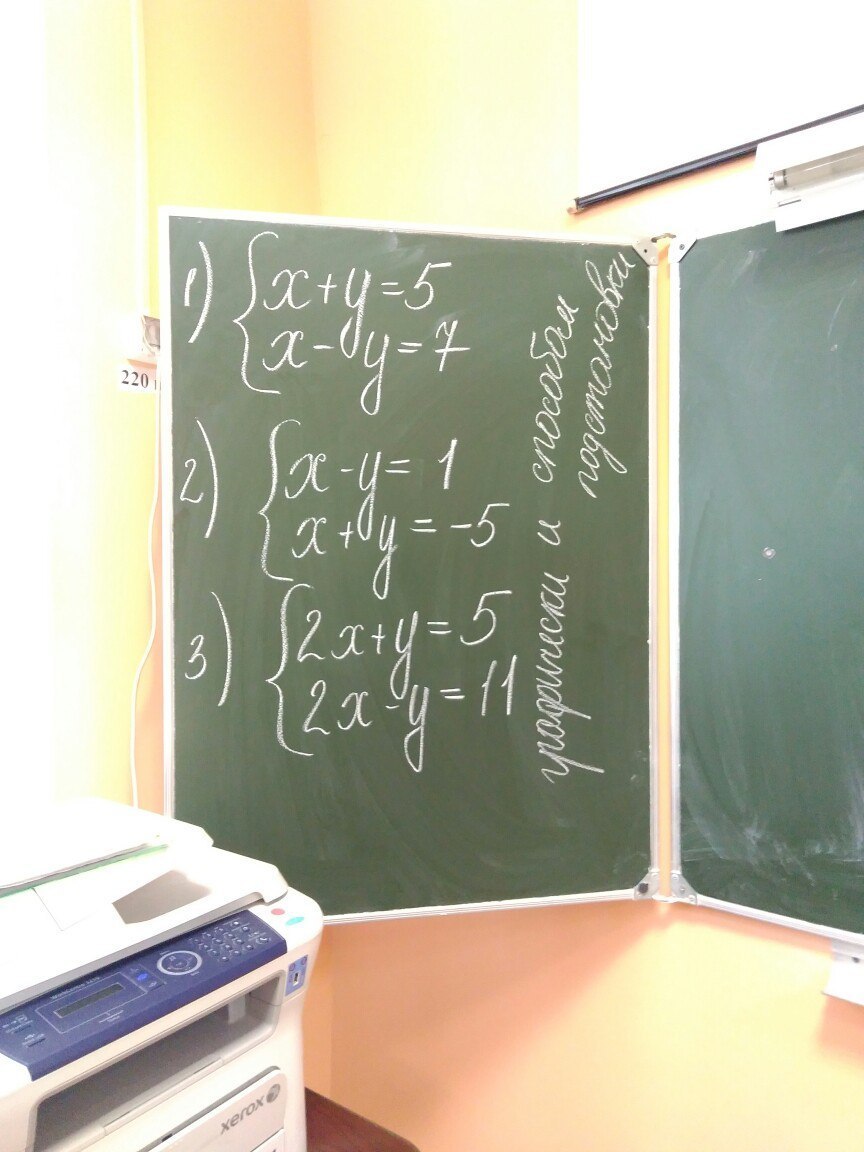 1) { x+y=5
x-y=7
2) { x-y= 1
x+y = -5
3) { 2x+y=5
2x-y=11
графически и способом
подстановки
220
xerox